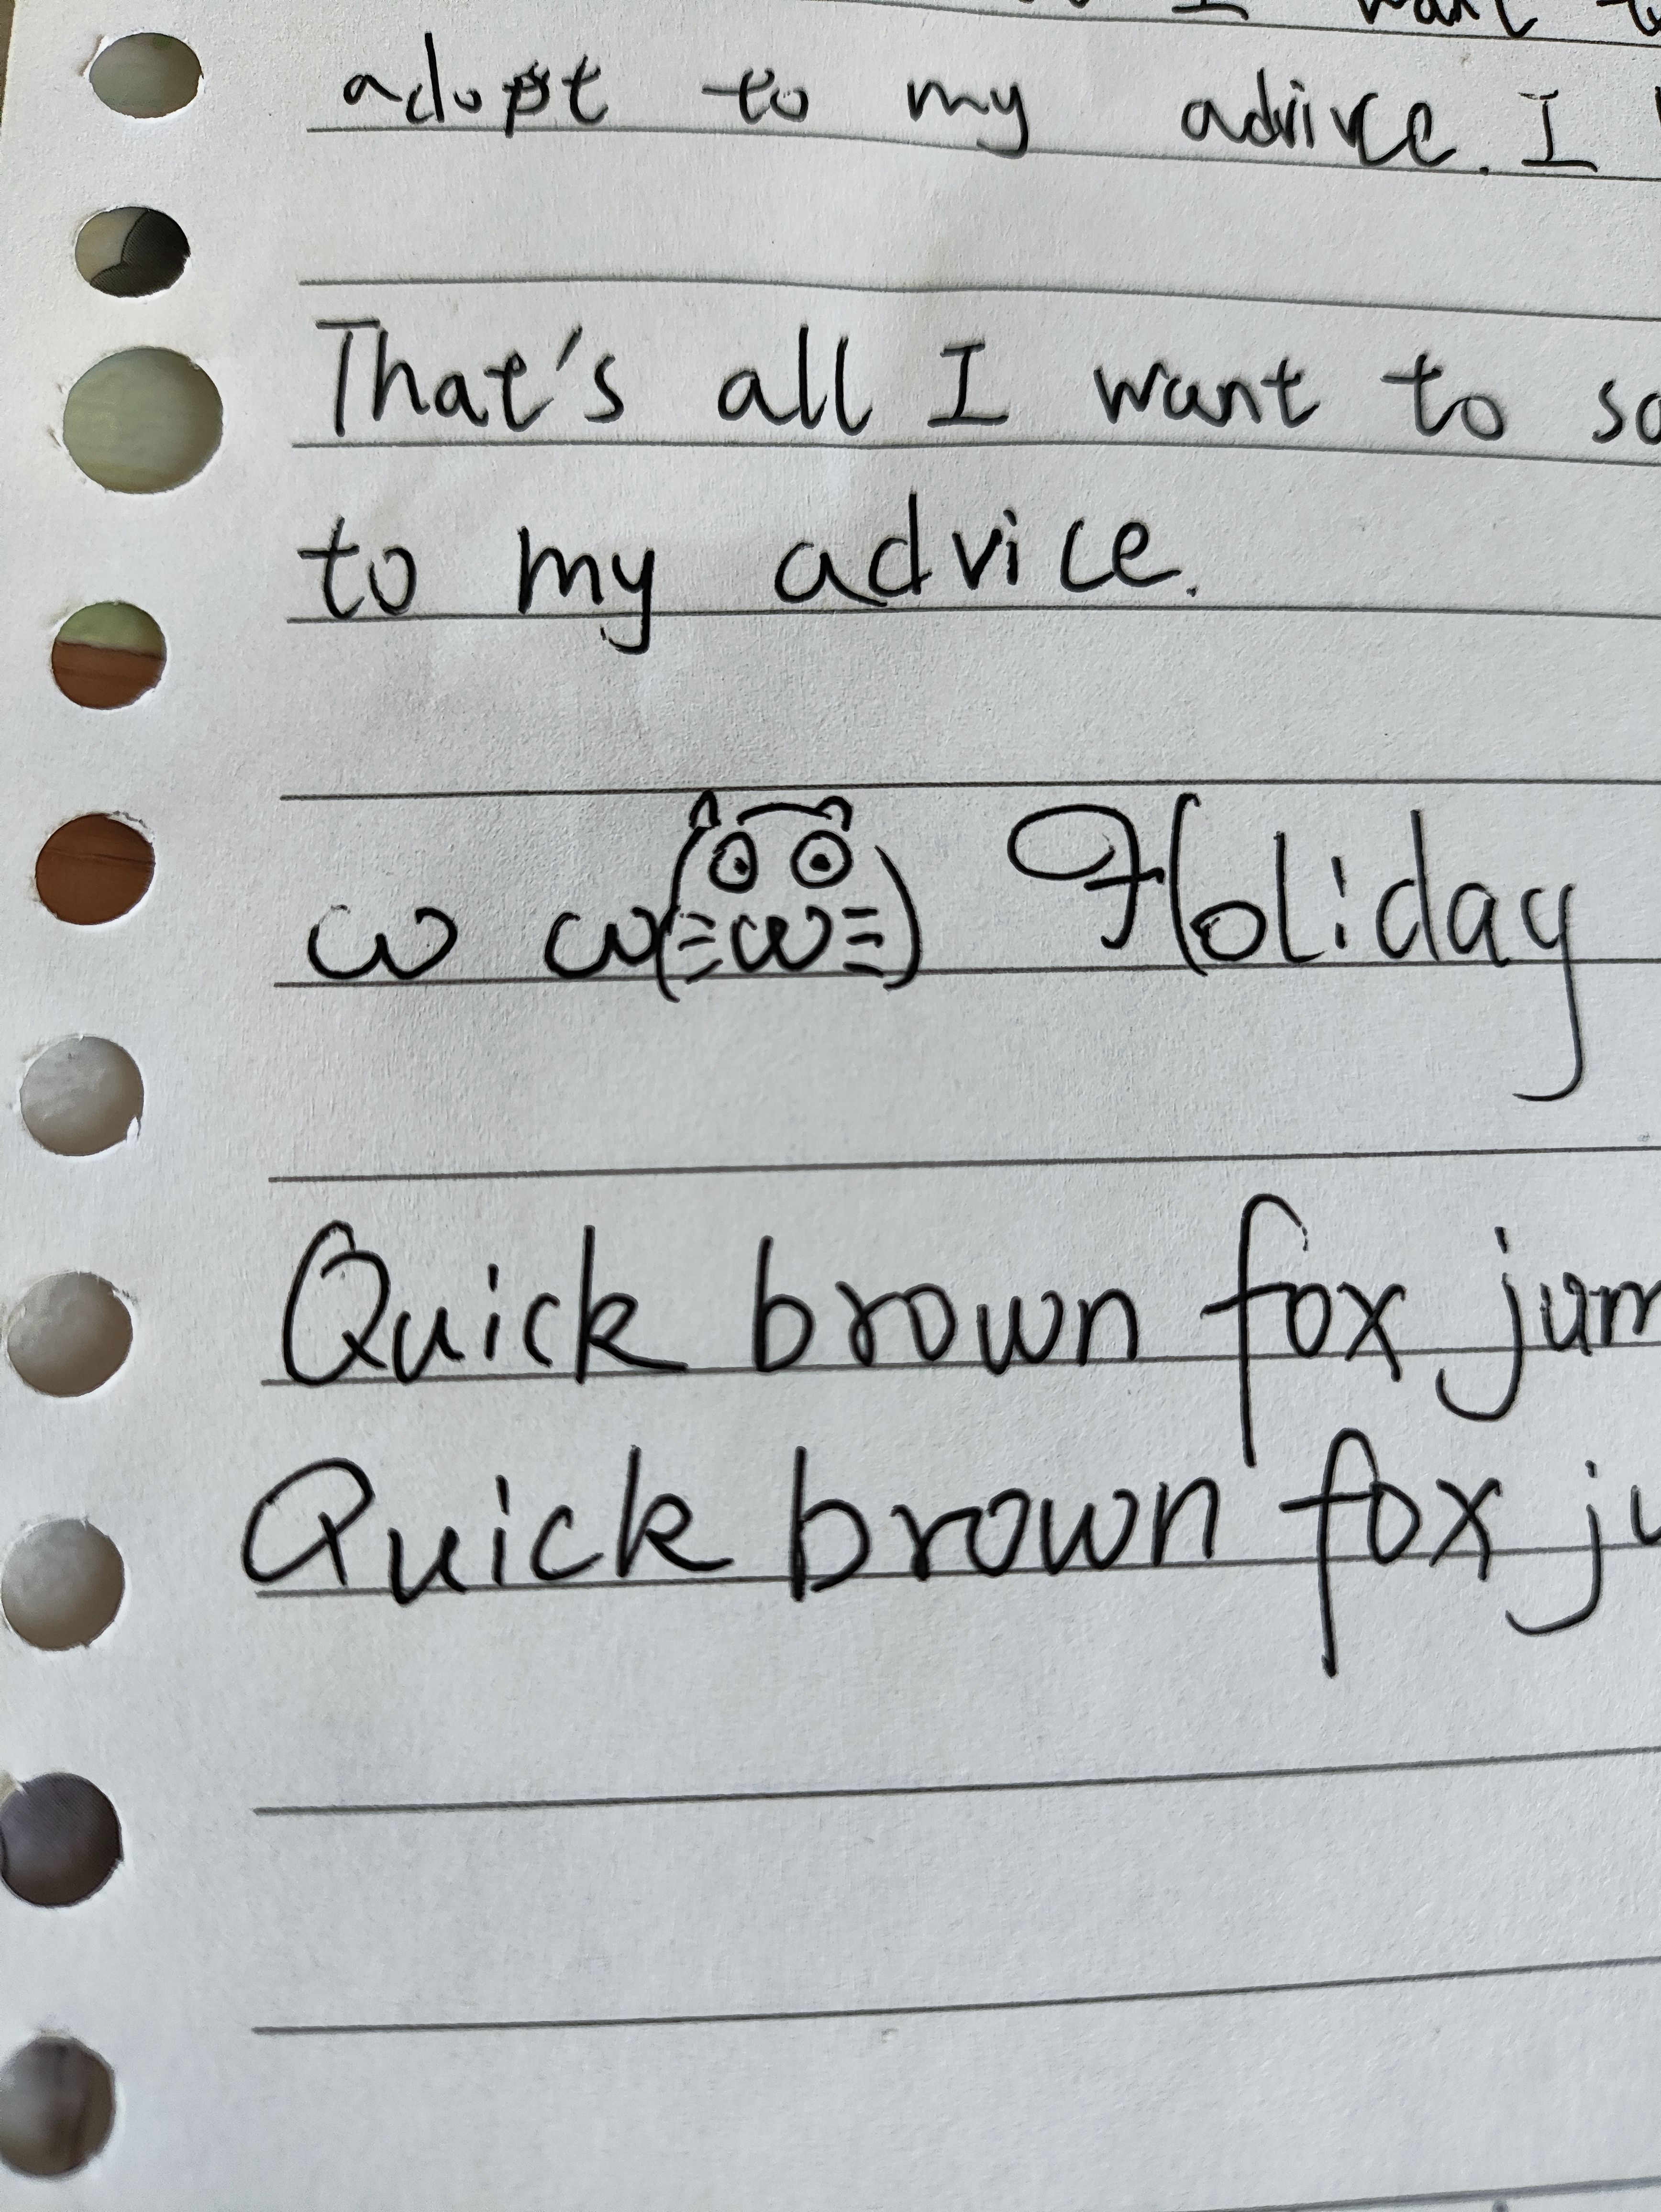 I want
adopt to my advice. I
That's all I want to sa
to my advice.
ω ω ω Holiday
Quick brown fox jum
Quick brown fox ju